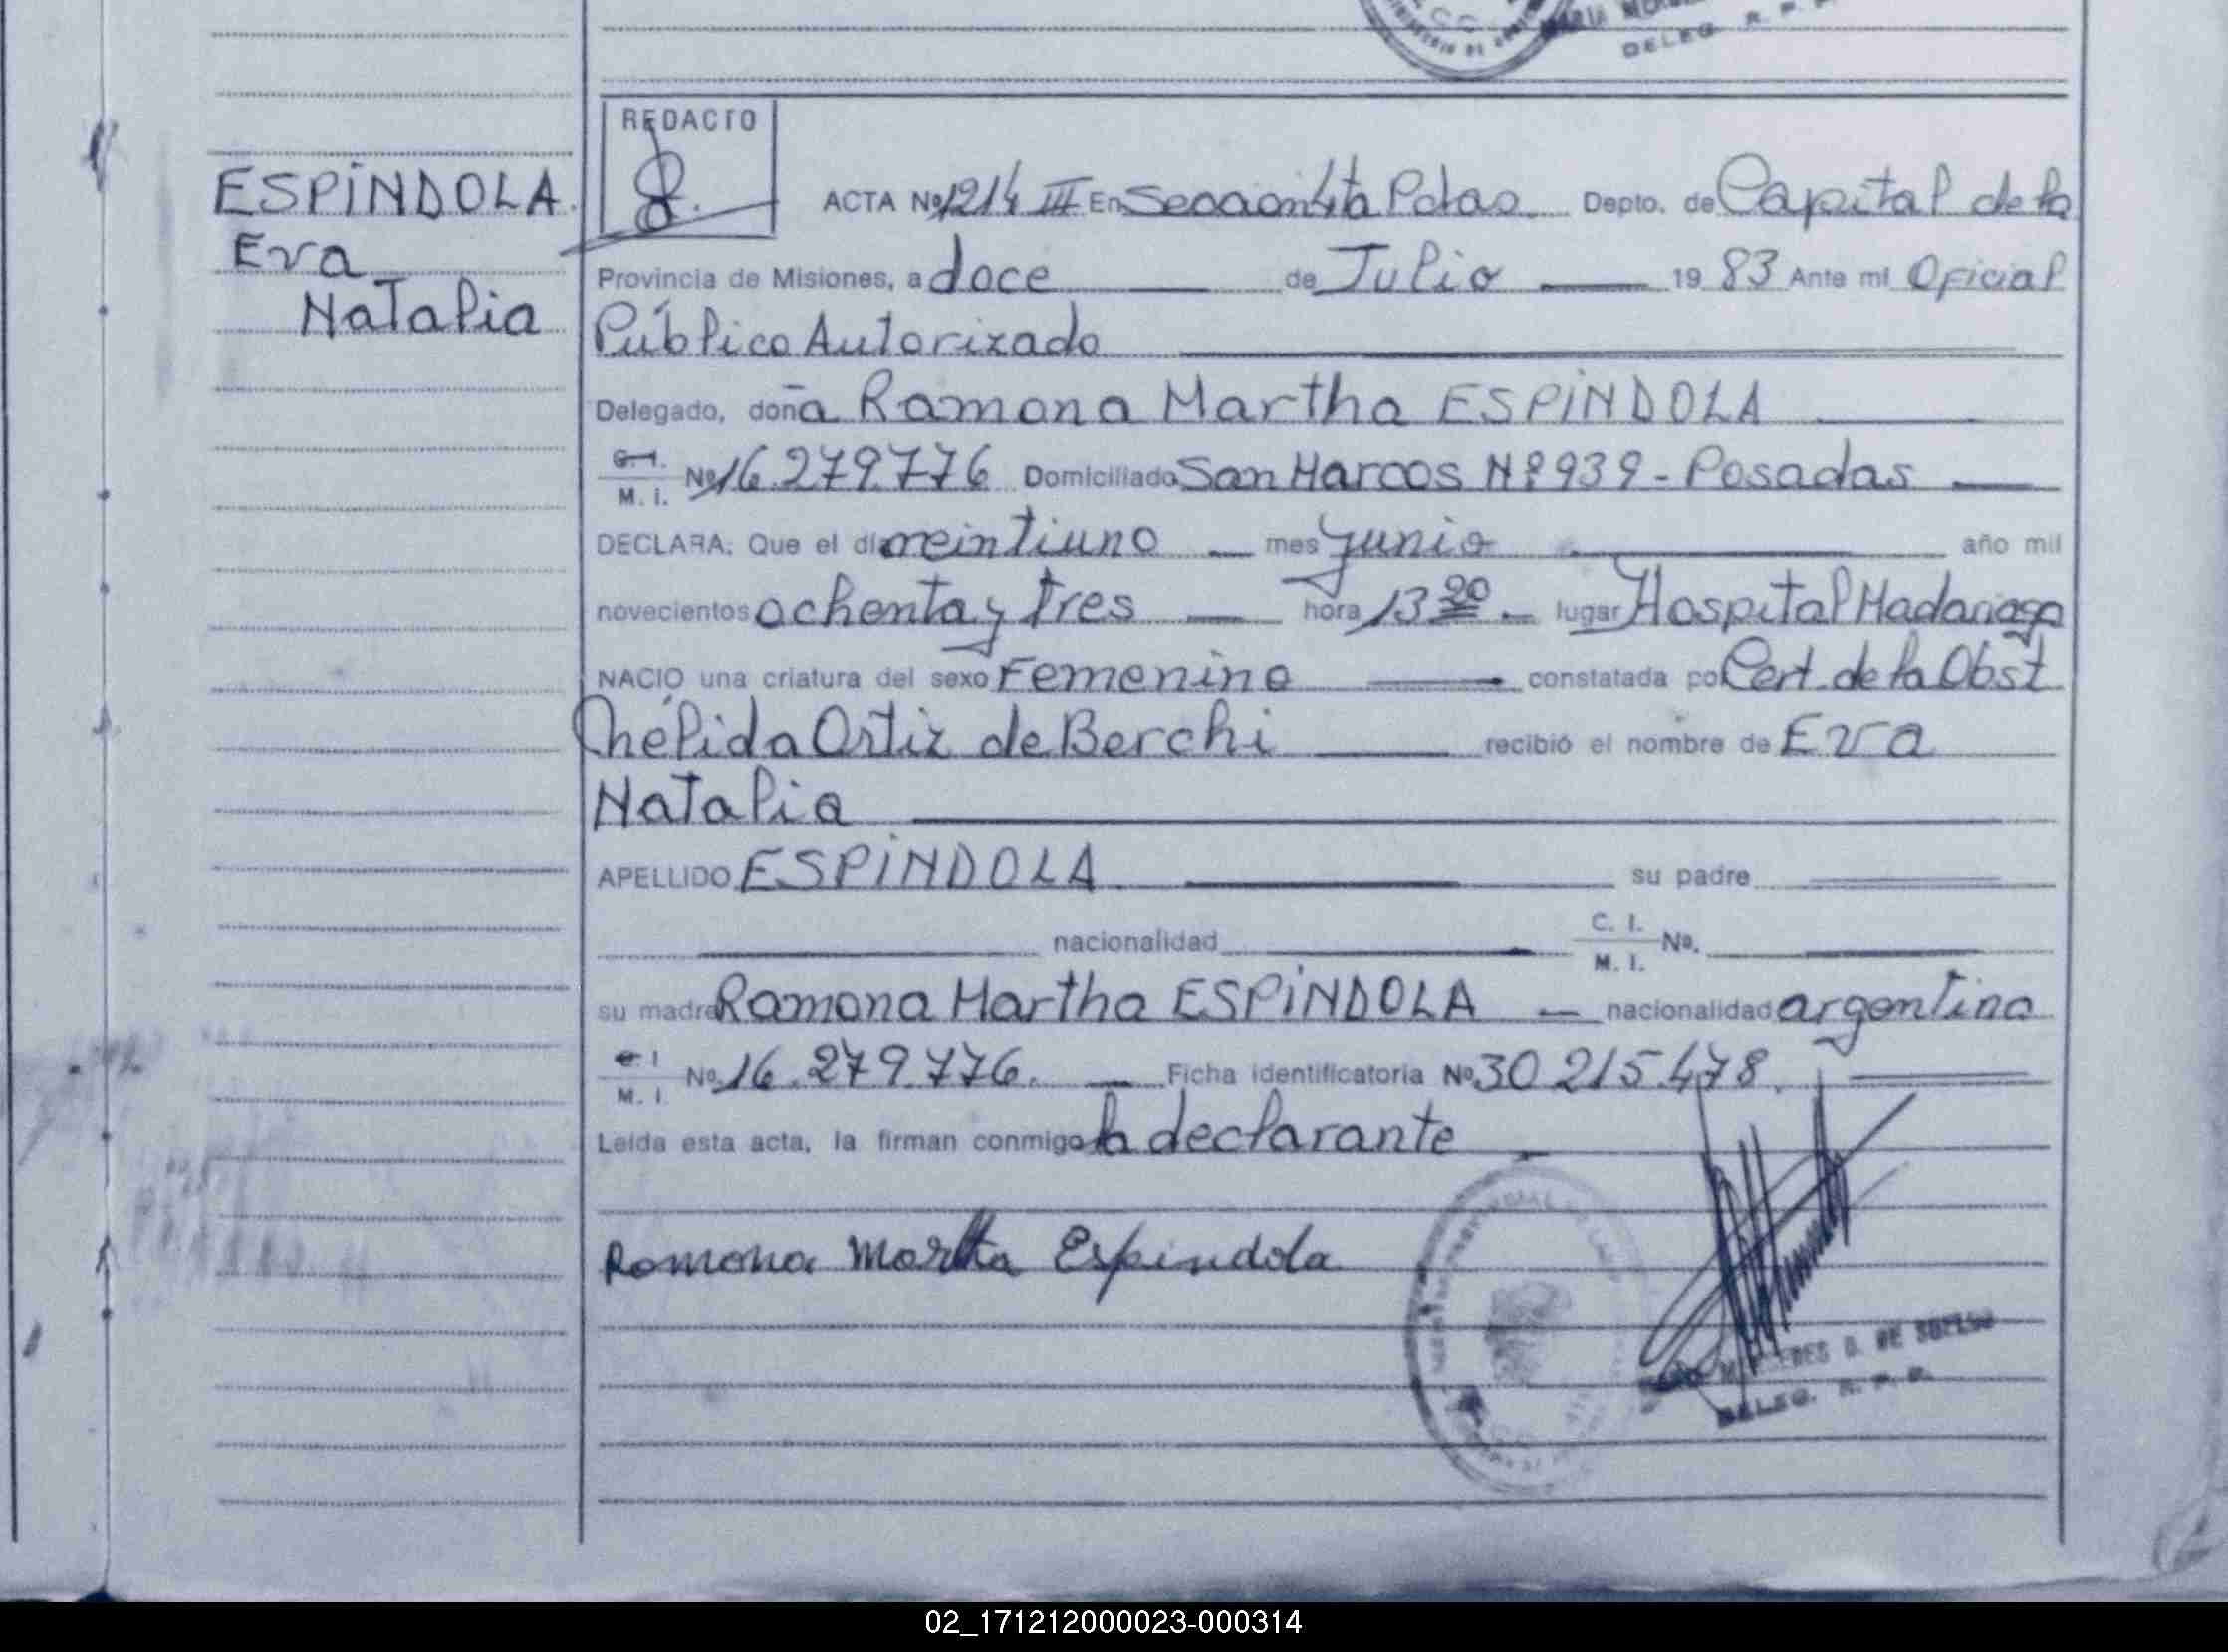 DELEG. R. P. P.
REDACTO
ESPíNDOLA.
Eva
Natalia
ACTA Nº 1214 III En Sección 4ta Pdas. Depto. de Capital de la
Provincia de Misiones, a doce de Julio 19 83 Ante mí Oficial
Público Autorizado
Delegado, doña Ramona Martha ESPíNDOLA
C. I. / M. I. Nº 16.279.776 Domiciliada San Marcos Nº 939 - Posadas
DECLARA: Que el día veintiuno mes junio año mil
novecientos ochenta y tres hora 13 20 lugar Hospital Madariaga
NACIO una criatura del sexo Femenino constatada por Cert. de la Obst
Nélida Ortiz de Berchi recibió el nombre de Eva
Natalia
APELLIDO ESPíNDOLA su padre
nacionalidad C. I. / M. I. Nº.
su madre Ramona Martha ESPíNDOLA nacionalidad argentina
C. I. / M. I. Nº 16.279.776. Ficha identificatoria Nº 30 215.478.
Leída esta acta, la firman conmigo la declarante
Ramona Martha Espindola
DELEG. R. P. P.
02_171212000023-000314